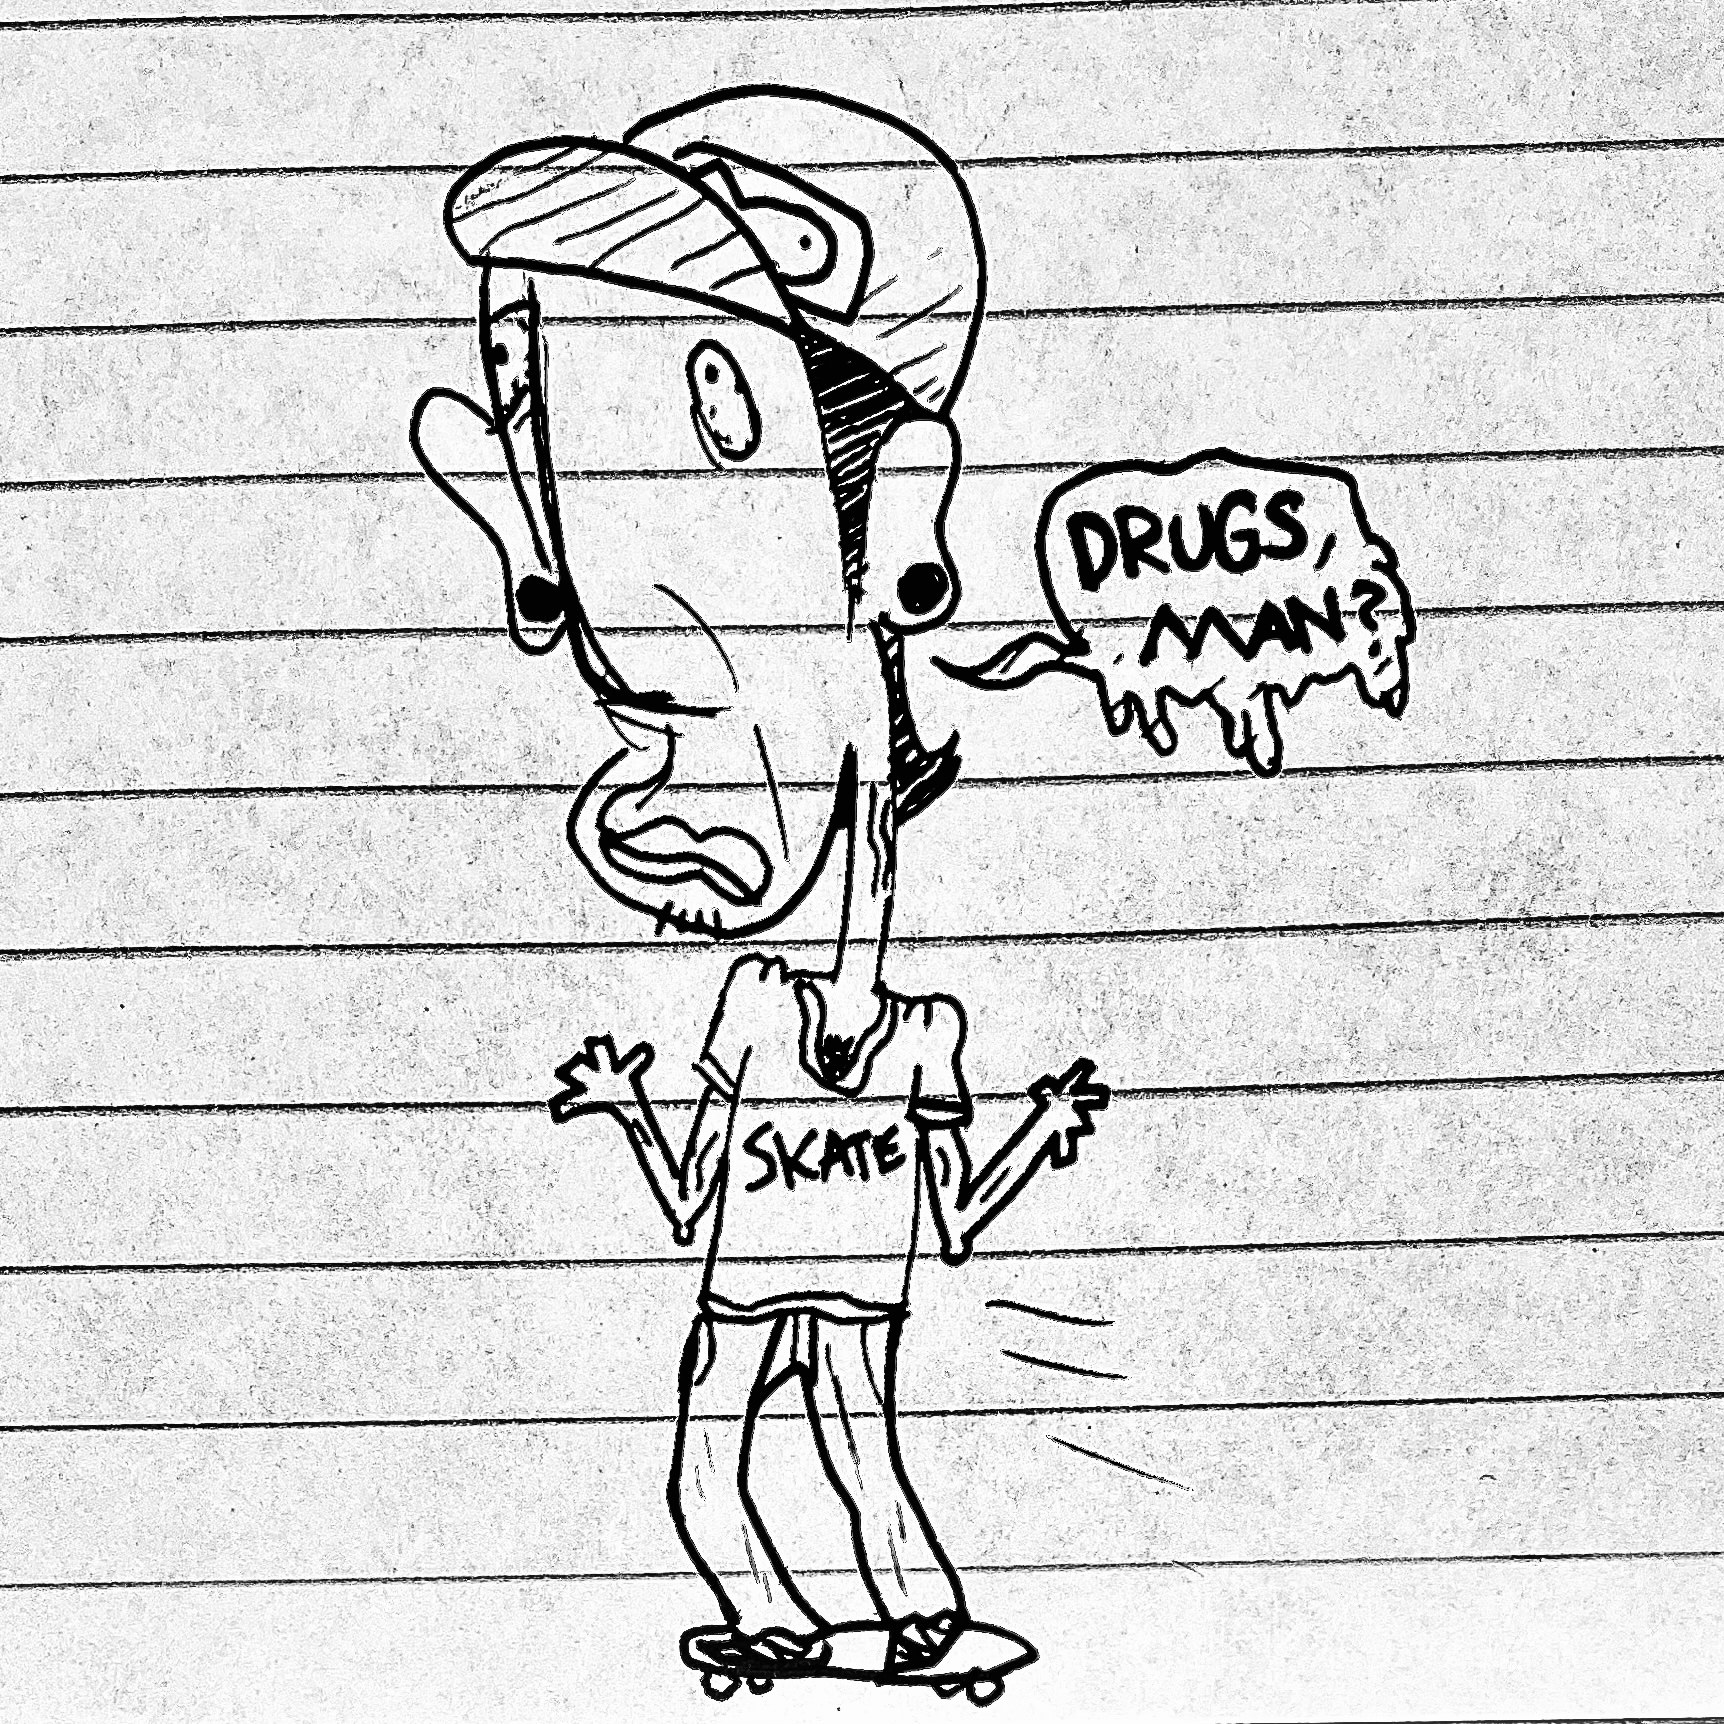 DRUGS,
MAN?
SKATE